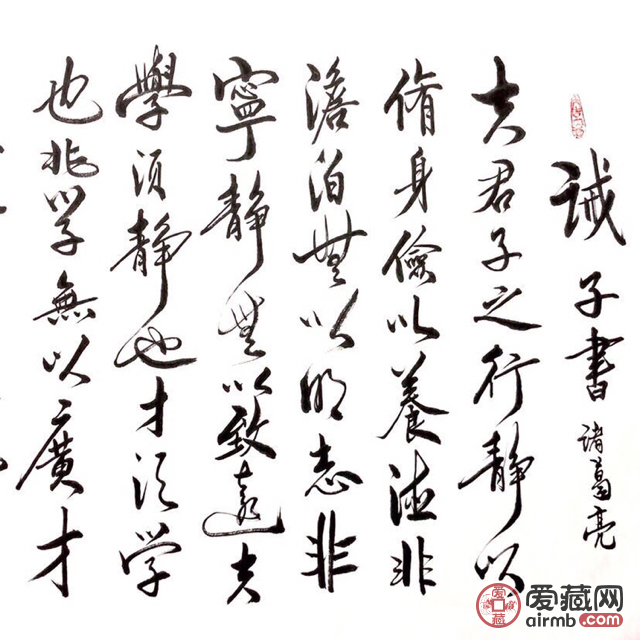 诫子書 诸葛亮
夫君子之行静以
脩身儉以養德非
澹泊無以明志非
寧静無以致遠夫
學須静也才须学
也非学無以廣才
爱藏网
airmb.com